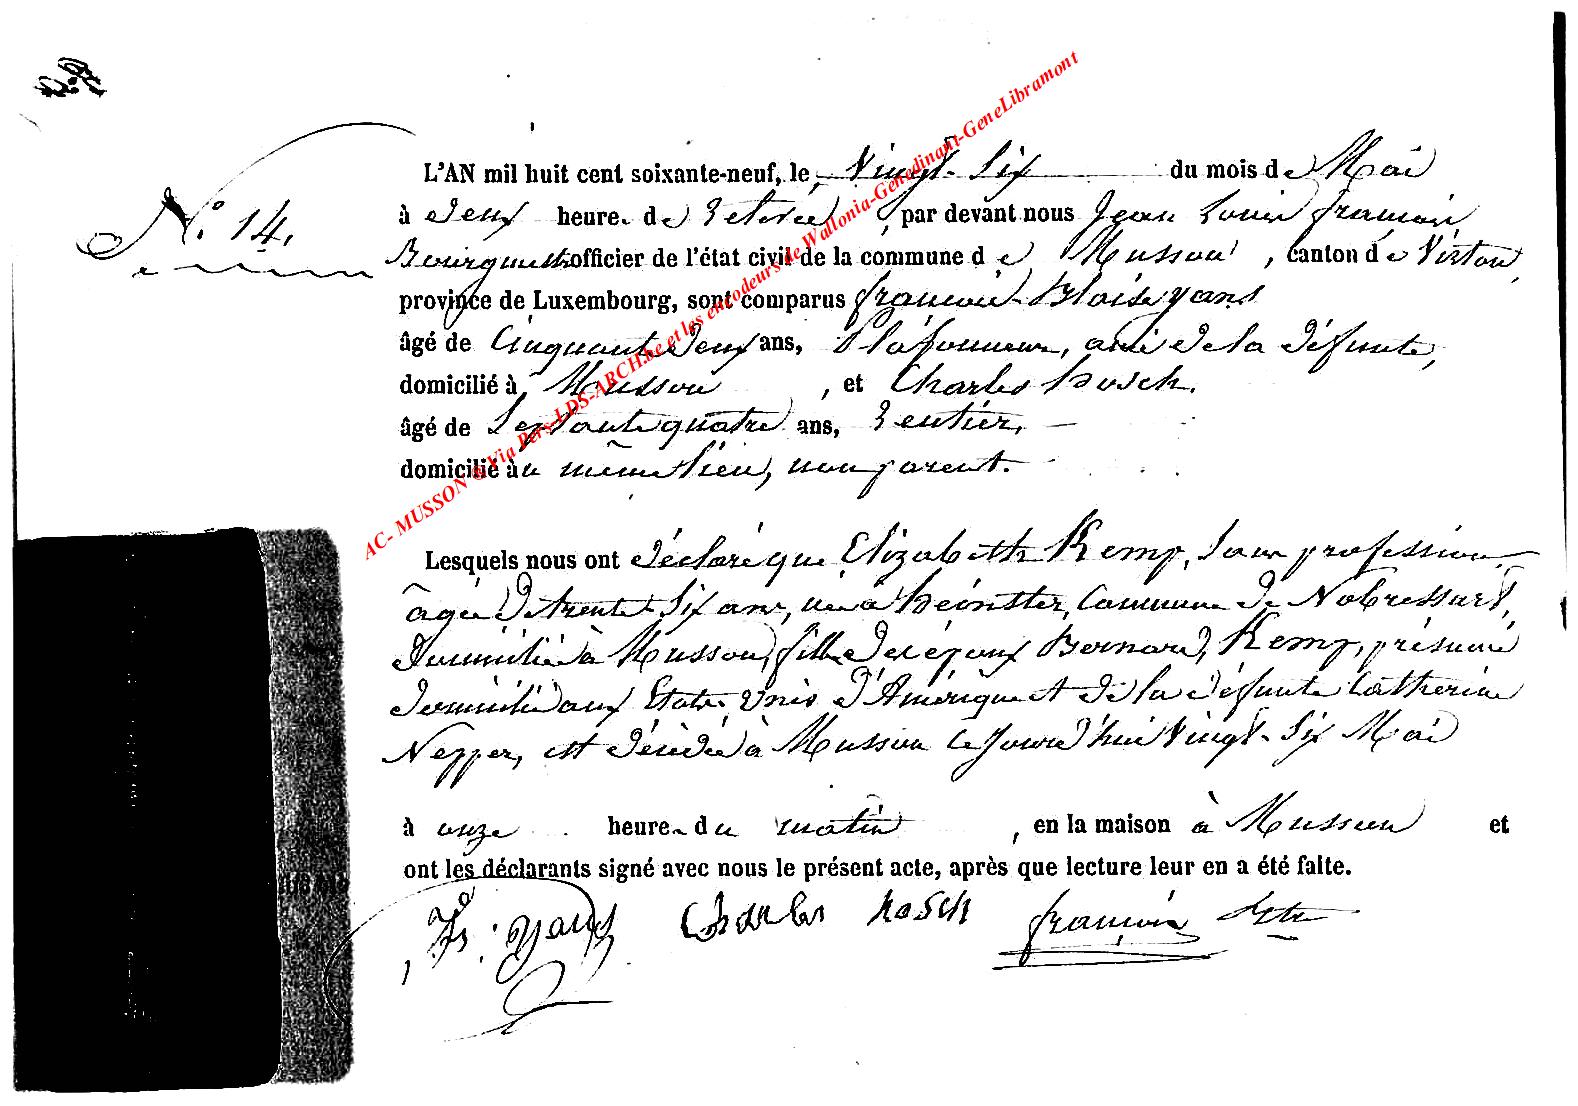 N.o 14.
L'AN mil huit cent soixante-neuf, le vingt-six du mois de Mai
à deux heure de relevée, par devant nous Jean Louis françois
Bourguet officier de l'état civil de la commune de Musson, canton de Virton,
province de Luxembourg, sont comparus françois-Blaise yans
âgé de Cinquante deux ans, Plafonneur, ami de la défunte,
domicilié à Musson, et Charles hosch.
âgé de Septante quatre ans, rentier,
domicilié au même lieu, non parent.
Lesquels nous ont déclaré que Elizabeth Kemp, sans profession
agée de trente-six ans, née à heinster, Commune de Nobressart,
domiciliée à Musson, fille des époux Bernard Kemp, présumé
domicilié aux Etats-Unis d'Amérique et de la défunte Catherine
Nepper, est décédée à Musson ce jourd'hui vingt-six Mai
à onze heure du matin, en la maison à Musson et
ont les déclarants signé avec nous le présent acte, après que lecture leur en a été faite.
fs. yans Charles hosch françois
AC- MUSSON © Via Pers-LDS-ARCH.be et les encodeurs de Wallonia-Genedinant-GeneLibramont